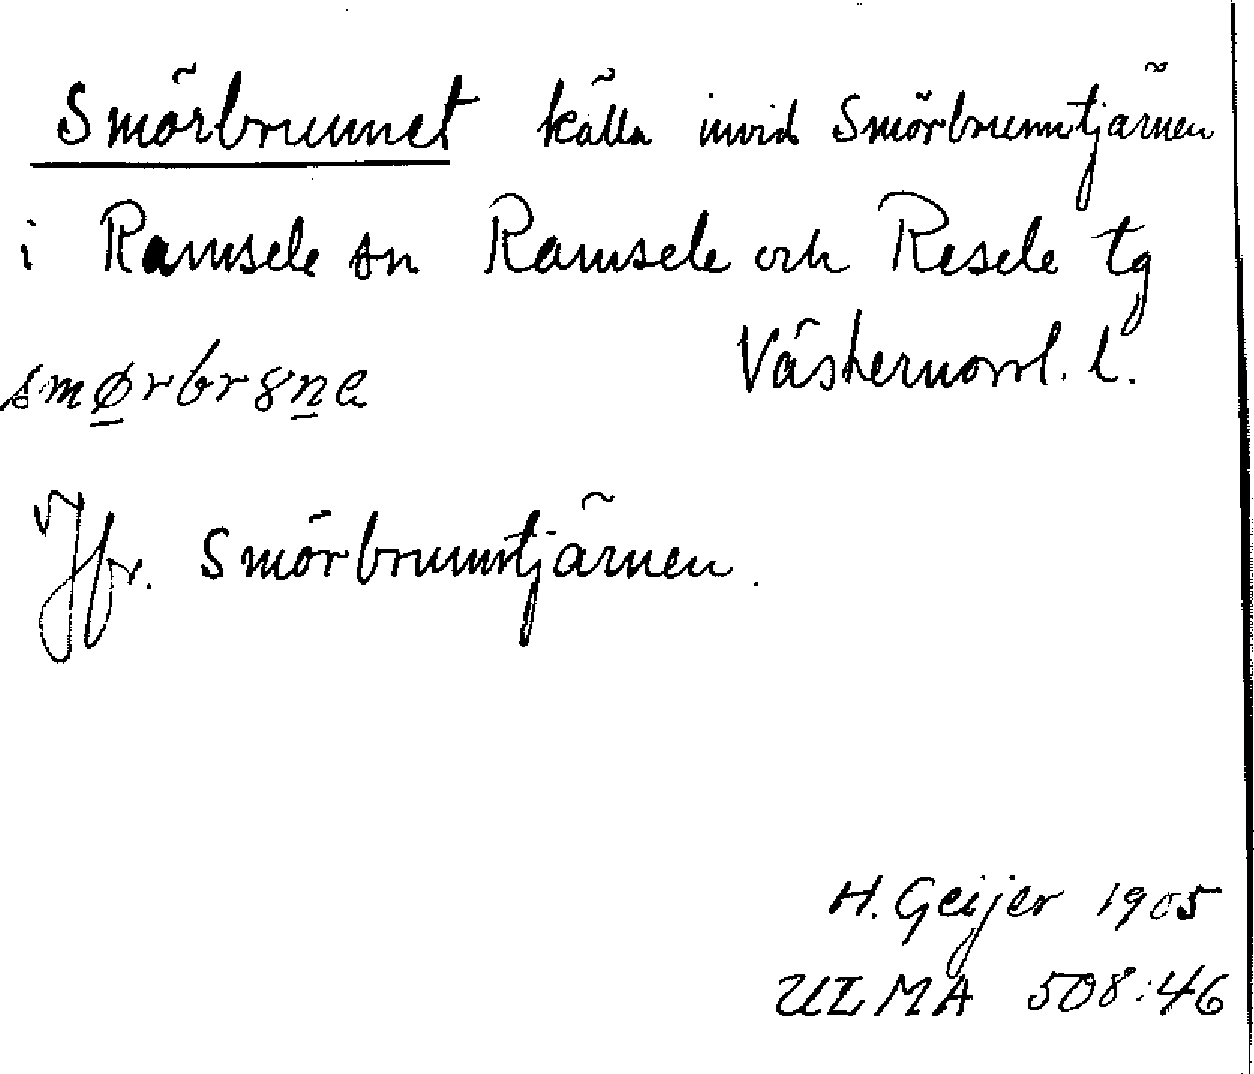 Smörbrunnet källa invid Smörbrunntjärnen
i Ramsele sn Ramsele och Resele tg
Västernorrl. l.
smørbr8ne
Jfr. Smörbrunntjärnen.
H. Geijer 1905
ULMA 508:46